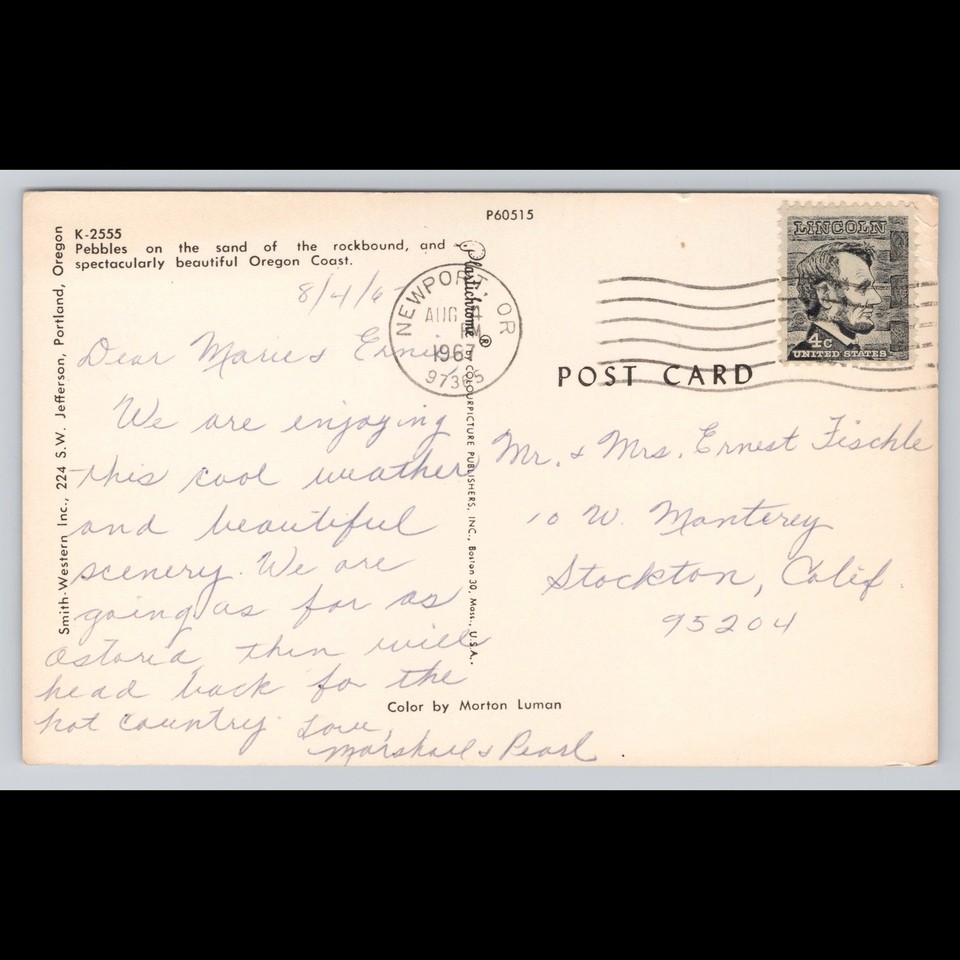 P60515
K-2555
Pebbles on the sand of the rockbound, and
spectacularly beautiful Oregon Coast.
Smith-Western Inc., 224 S.W. Jefferson, Portland, Oregon
8/4/67
Dear Marie & Ernie
We are enjoying
this cool weather
and beautiful
scenery. We are
going as far as
Astoria, then will
head back for the
hot country. Love,
Marshall & Pearl
Plastichrome ® BY COLOURPICTURE PUBLISHERS, INC., Boston 30, Mass., U.S.A.
NEWPORT, OR
AUG 4
PM
1967
97365
LINCOLN
4c
UNITED STATES
POST CARD
Mr. & Mrs. Ernest Fischle
10 W. Monterey
Stockton, Calif.
95204
Color by Morton Luman